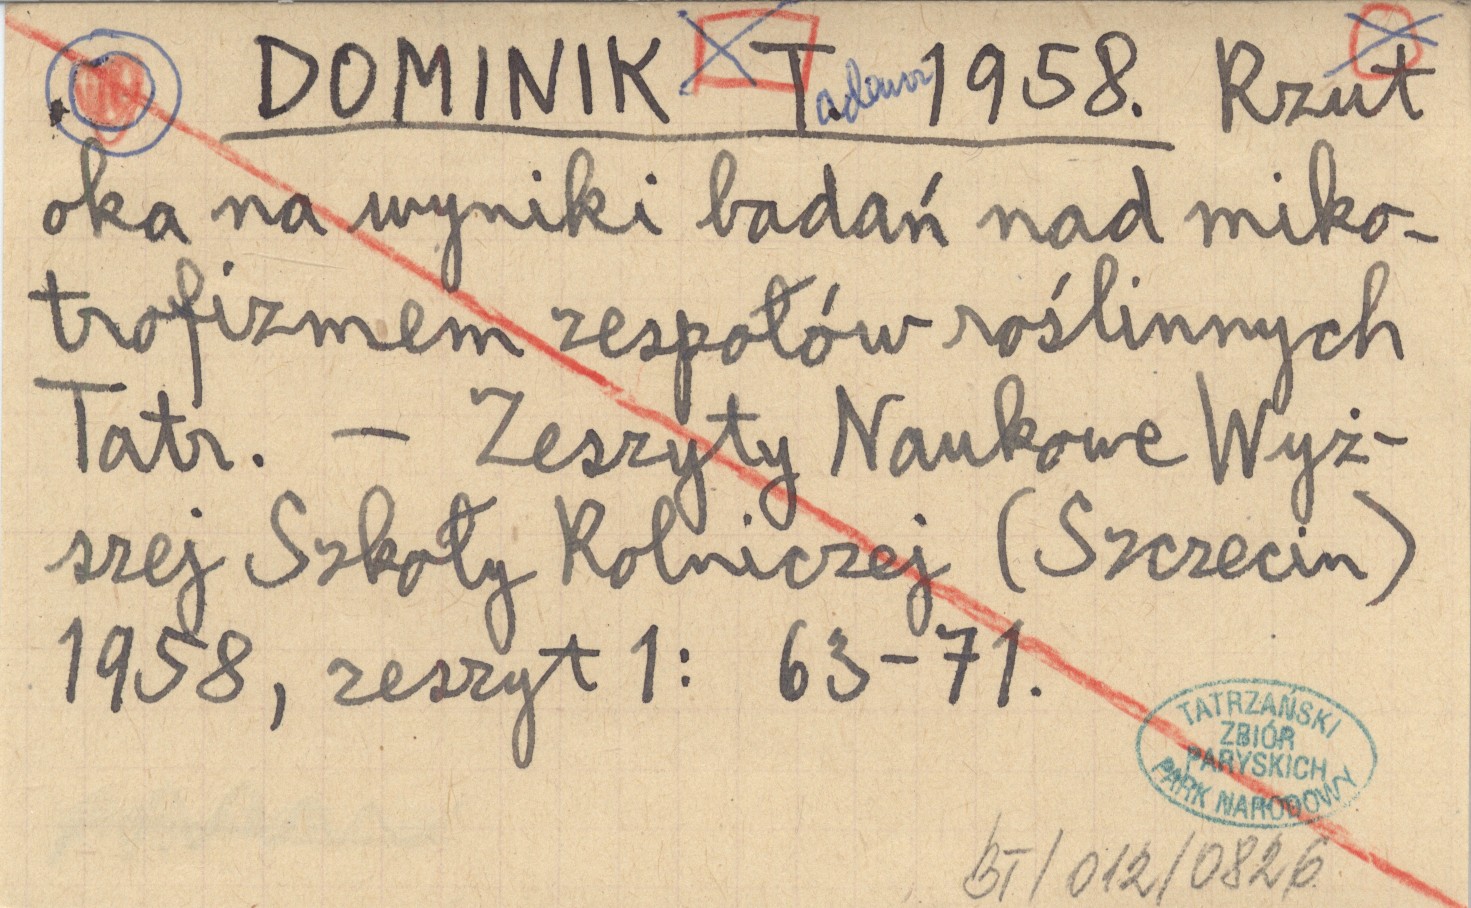 DOMINIK Tadeusz 1958. Rzut
oka na wyniki badań nad miko-
trofizmem zespołów roślinnych
Tatr. – Zeszyty Naukowe Wyż-
szej Szkoły Rolniczej (Szczecin)
1958, zeszyt 1: 63–71.
TATRZAŃSKI
ZBIÓR
PARYSKICH
PARK NARODOWY
BT/012/0826